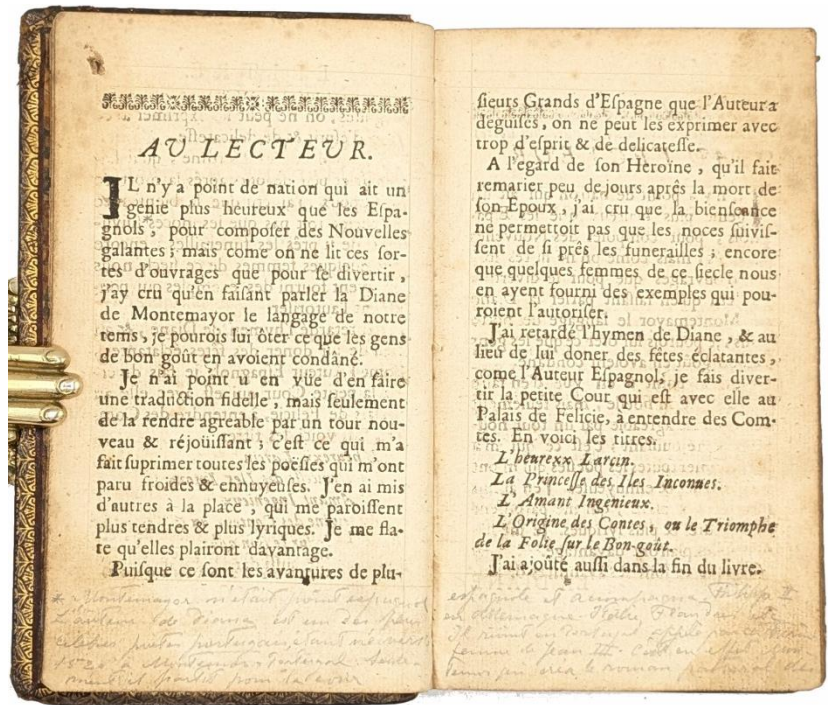 AU LECTEUR.
IL n'y a point de nation qui ait un
génie plus heureux que les Espa-
gnols, pour composer des Nouvelles
galantes; mais come on ne lit ces sor-
tes d'ouvrages que pour se divertir,
j'ay cru qu'en faisant parler la Diane
de Montemayor le langage de notre
tems, je pourois lui ôter ce que les gens
de bon goût en avoient condâné.
Je n'ai point u en vüe d'en faire
une traduction fidelle, mais seulement
de la rendre agreable par un tour nou-
veau & réjoüissant; c'est ce qui m'a
fait suprimer toutes les poësies qui m'ont
paru froides & ennuyeuses. J'en ai mis
d'autres à la place, qui me paroissent
plus tendres & plus lyriques. Je me fla-
te qu'elles plairont davantage.
Puisque ce sont les avantures de plu-
* Montemayor n'était point espagnol
L'auteur de Diana est un des plus
célèbres poetes portugais, étant né vers
1520 à Montemor, Portugal.
ment il partit pour la
sieurs Grands d'Espagne que l'Auteur a
déguisés, on ne peut les exprimer avec
trop d'esprit & de delicatesse.
A l'egard de son Heroïne, qu'il fait
remarier peu de jours aprés la mort de
son Epoux, j'ai cru que la bienseance
ne permettoit pas que les noces suivis-
sent de si prês les funerailles; encore
que quelques femmes de ce siecle nous
en ayent fourni des exemples qui pou-
roient l'autoriser.
J'ai retardé l'hymen de Diane, & au
lieu de lui doner des fêtes éclatantes,
come l'Auteur Espagnol, je fais diver-
tir la petite Cour qui est avec elle au
Palais de Felicie, à entendre des Com-
tes. En voici les titres.
L'heurexx Larcin.
La Princesse des Iles Inconues.
L'Amant Ingenieux.
L'Origine des Contes, ou le Triomphe
de la Folie sur le Bon-goût.
J'ai ajoûté aussi dans la fin du livre.
espagnole et accompagna Philippe II
en Allemagne, Italie, Flandre
Il revint en Portugal appelé par
femme de Jean III. C'est en effet Mon-
temor qui créa le roman pastoral